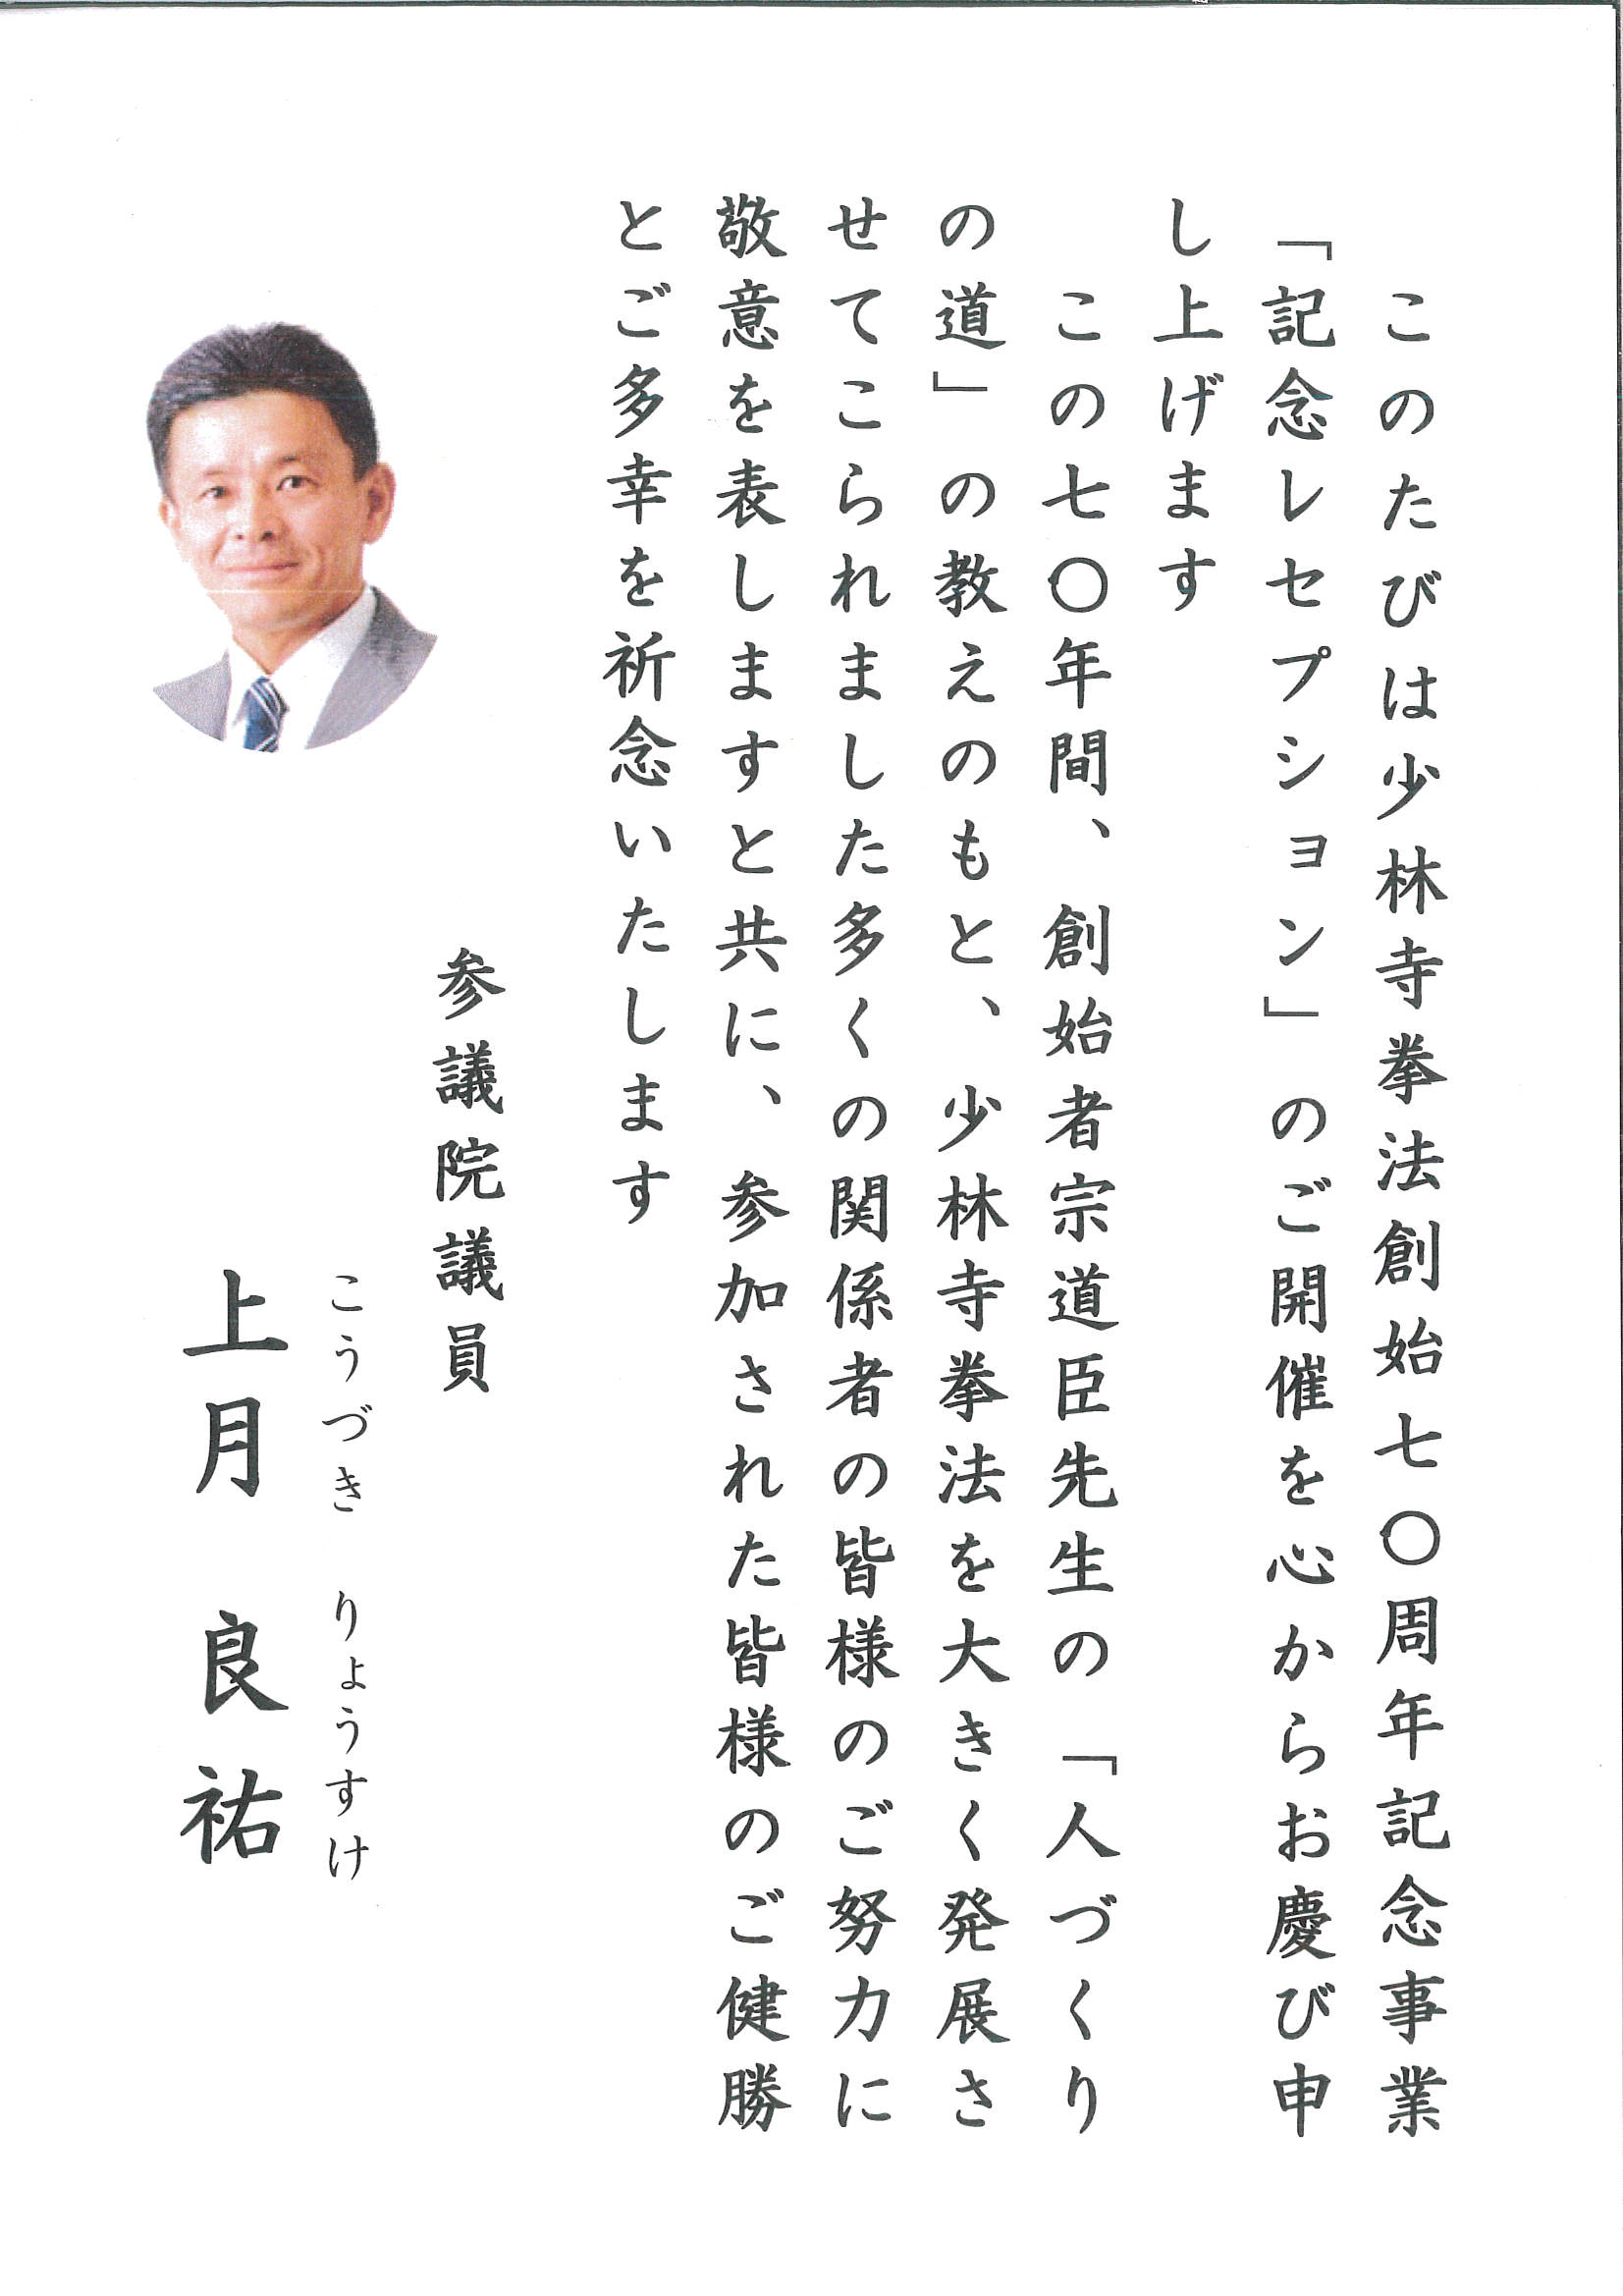 このたびは少林寺拳法創始七〇周年記念事業
「記念レセプション」のご開催を心からお慶び申
し上げます
この七〇年間、創始者宗道臣先生の「人づくり
の道」の教えのもと、少林寺拳法を大きく発展さ
せてこられました多くの関係者の皆様のご努力に
敬意を表しますと共に、参加された皆様のご健勝
とご多幸を祈念いたします
参議院議員
こうづき りょうすけ
上月 良祐